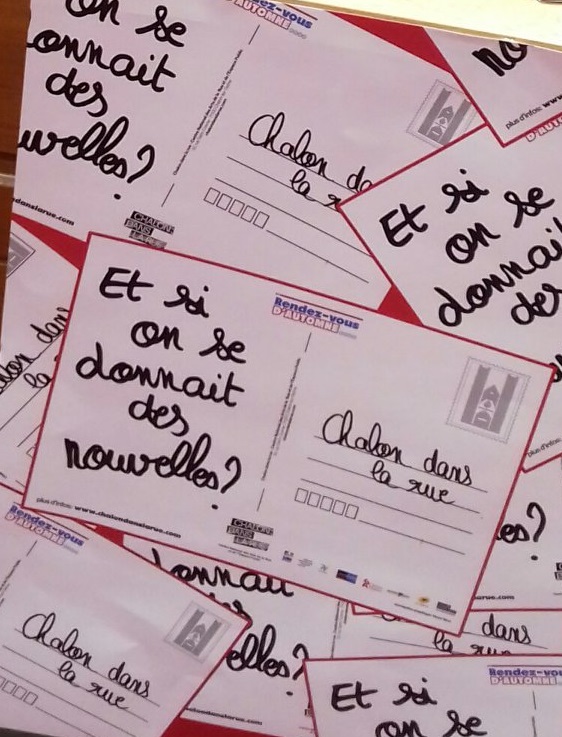 on se
donnait
des
nouvelles?
Rendez-vous
D'AUTOMNE
Chalon dans
la r
CHALON
DANS
LA RUE
no
plus d'infos: www
Et si
on se
donnait
des
Et si
on se
donnait
des
nouvelles?
plus d'infos: www.chalondanslarue.com
Rendez-vous
D'AUTOMNE
Chalon dans
la rue
CHALON
DANS
LA RUE
Rendez-vous
D'AUTOMNE
Chalon dans
la rue
donnait
elles?
es?
dans
la rue
Et si
on se
Rendez-vous
D'AUTOMNE